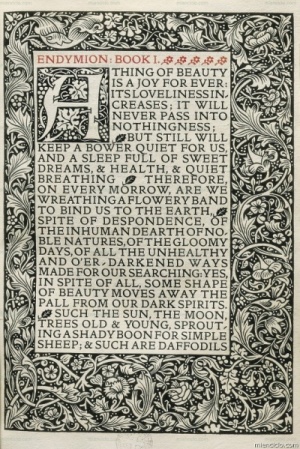 ENDYMION: BOOK I.
A THING OF BEAUTY
IS A JOY FOR EVER:
ITS LOVELINESS IN
CREASES; IT WILL
NEVER PASS INTO
NOTHINGNESS;
BUT STILL WILL
KEEP A BOWER QUIET FOR US,
AND A SLEEP FULL OF SWEET
DREAMS, & HEALTH, & QUIET
BREATHING. THEREFORE,
ON EVERY MORROW, ARE WE
WREATHING A FLOWERY BAND
TO BIND US TO THE EARTH,
SPITE OF DESPONDENCE, OF
THE INHUMAN DEARTH OF NO-
BLE NATURES, OF THE GLOOMY
DAYS, OF ALL THE UNHEALTHY
AND O'ER-DARKENED WAYS
MADE FOR OUR SEARCHING: YES,
IN SPITE OF ALL, SOME SHAPE
OF BEAUTY MOVES AWAY THE
PALL FROM OUR DARK SPIRITS.
SUCH THE SUN, THE MOON,
TREES OLD & YOUNG, SPROUT-
ING A SHADY BOON FOR SIMPLE
SHEEP; & SUCH ARE DAFFODILS